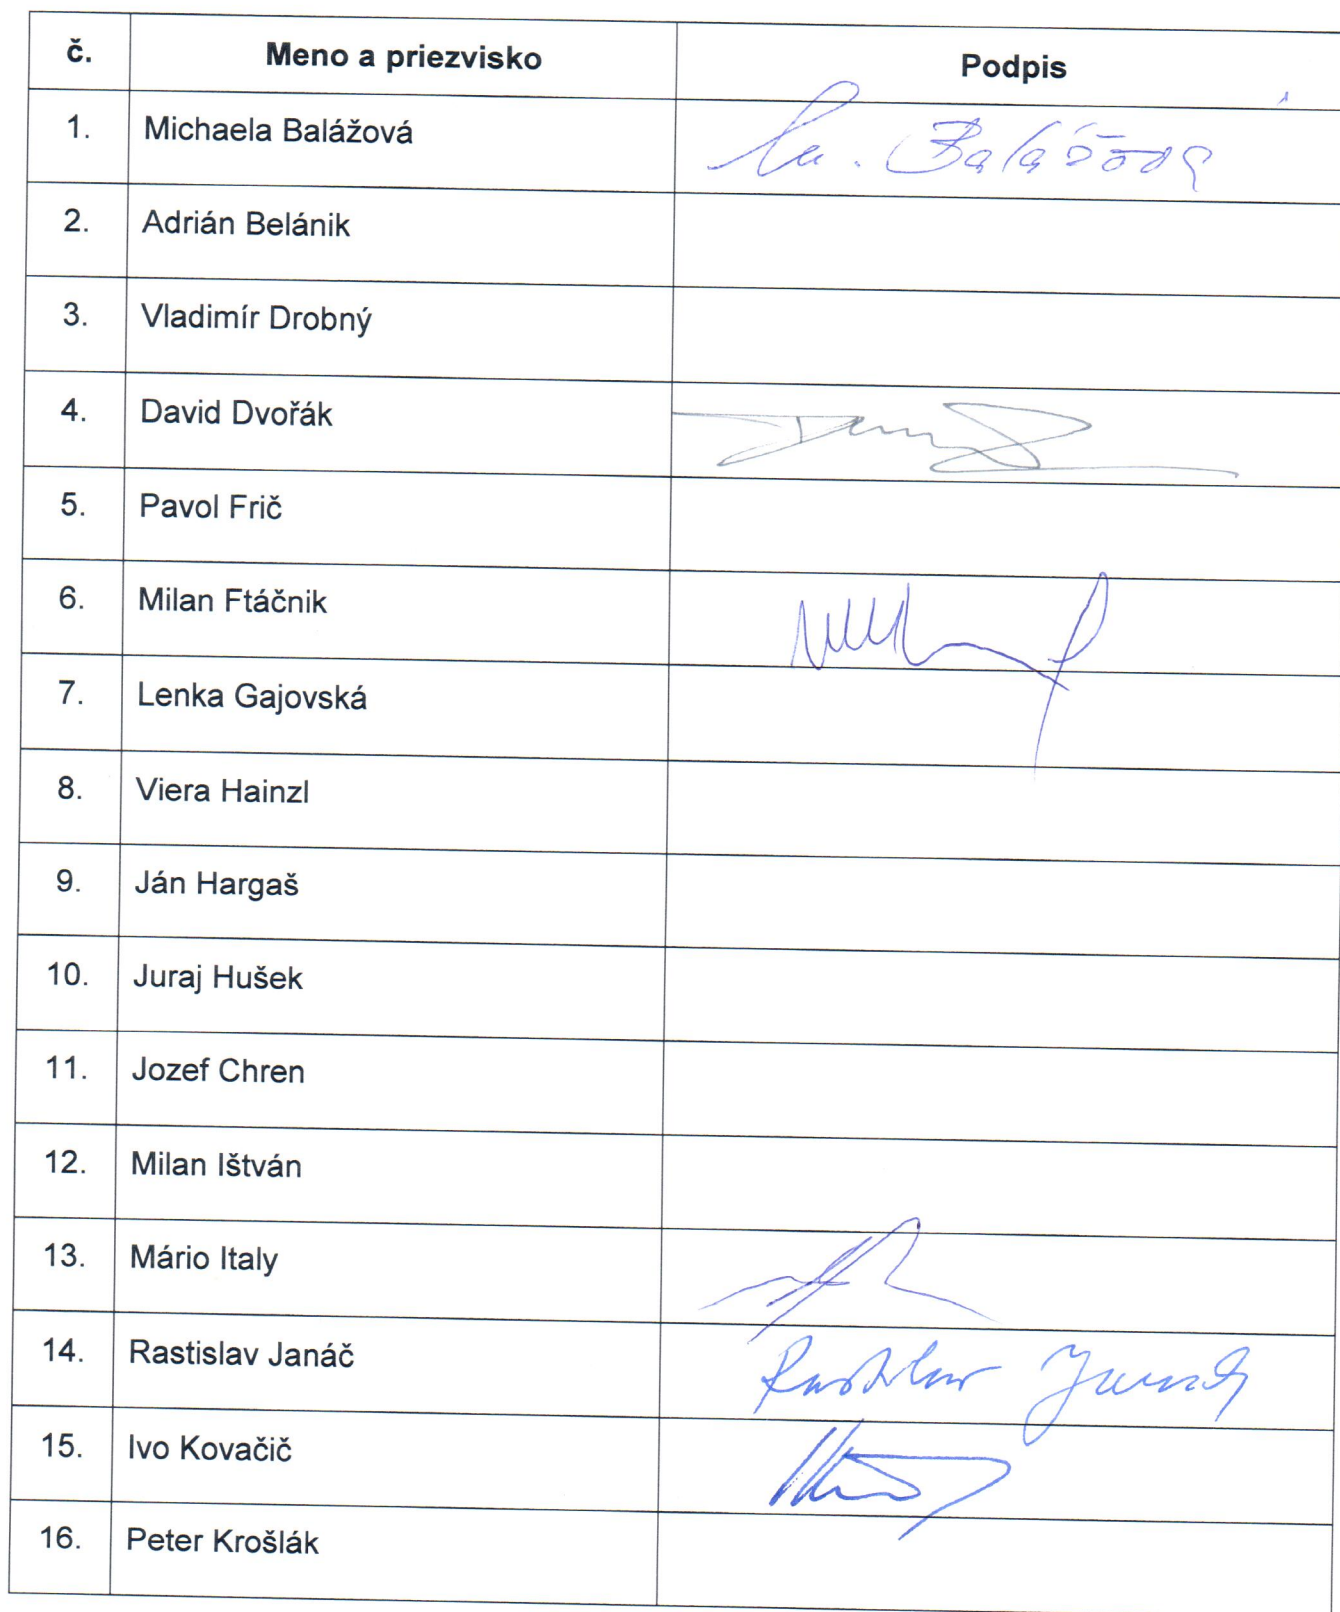 č. Meno a priezvisko Podpis
1. Michaela Balážová M. Balážová
2. Adrián Belánik
3. Vladimír Drobný
4. David Dvořák
5. Pavol Frič
6. Milan Ftáčnik
7. Lenka Gajovská
8. Viera Hainzl
9. Ján Hargaš
10. Juraj Hušek
11. Jozef Chren
12. Milan Ištván
13. Mário Italy
14. Rastislav Janáč Rastislav Janáč
15. Ivo Kovačič
16. Peter Krošlák